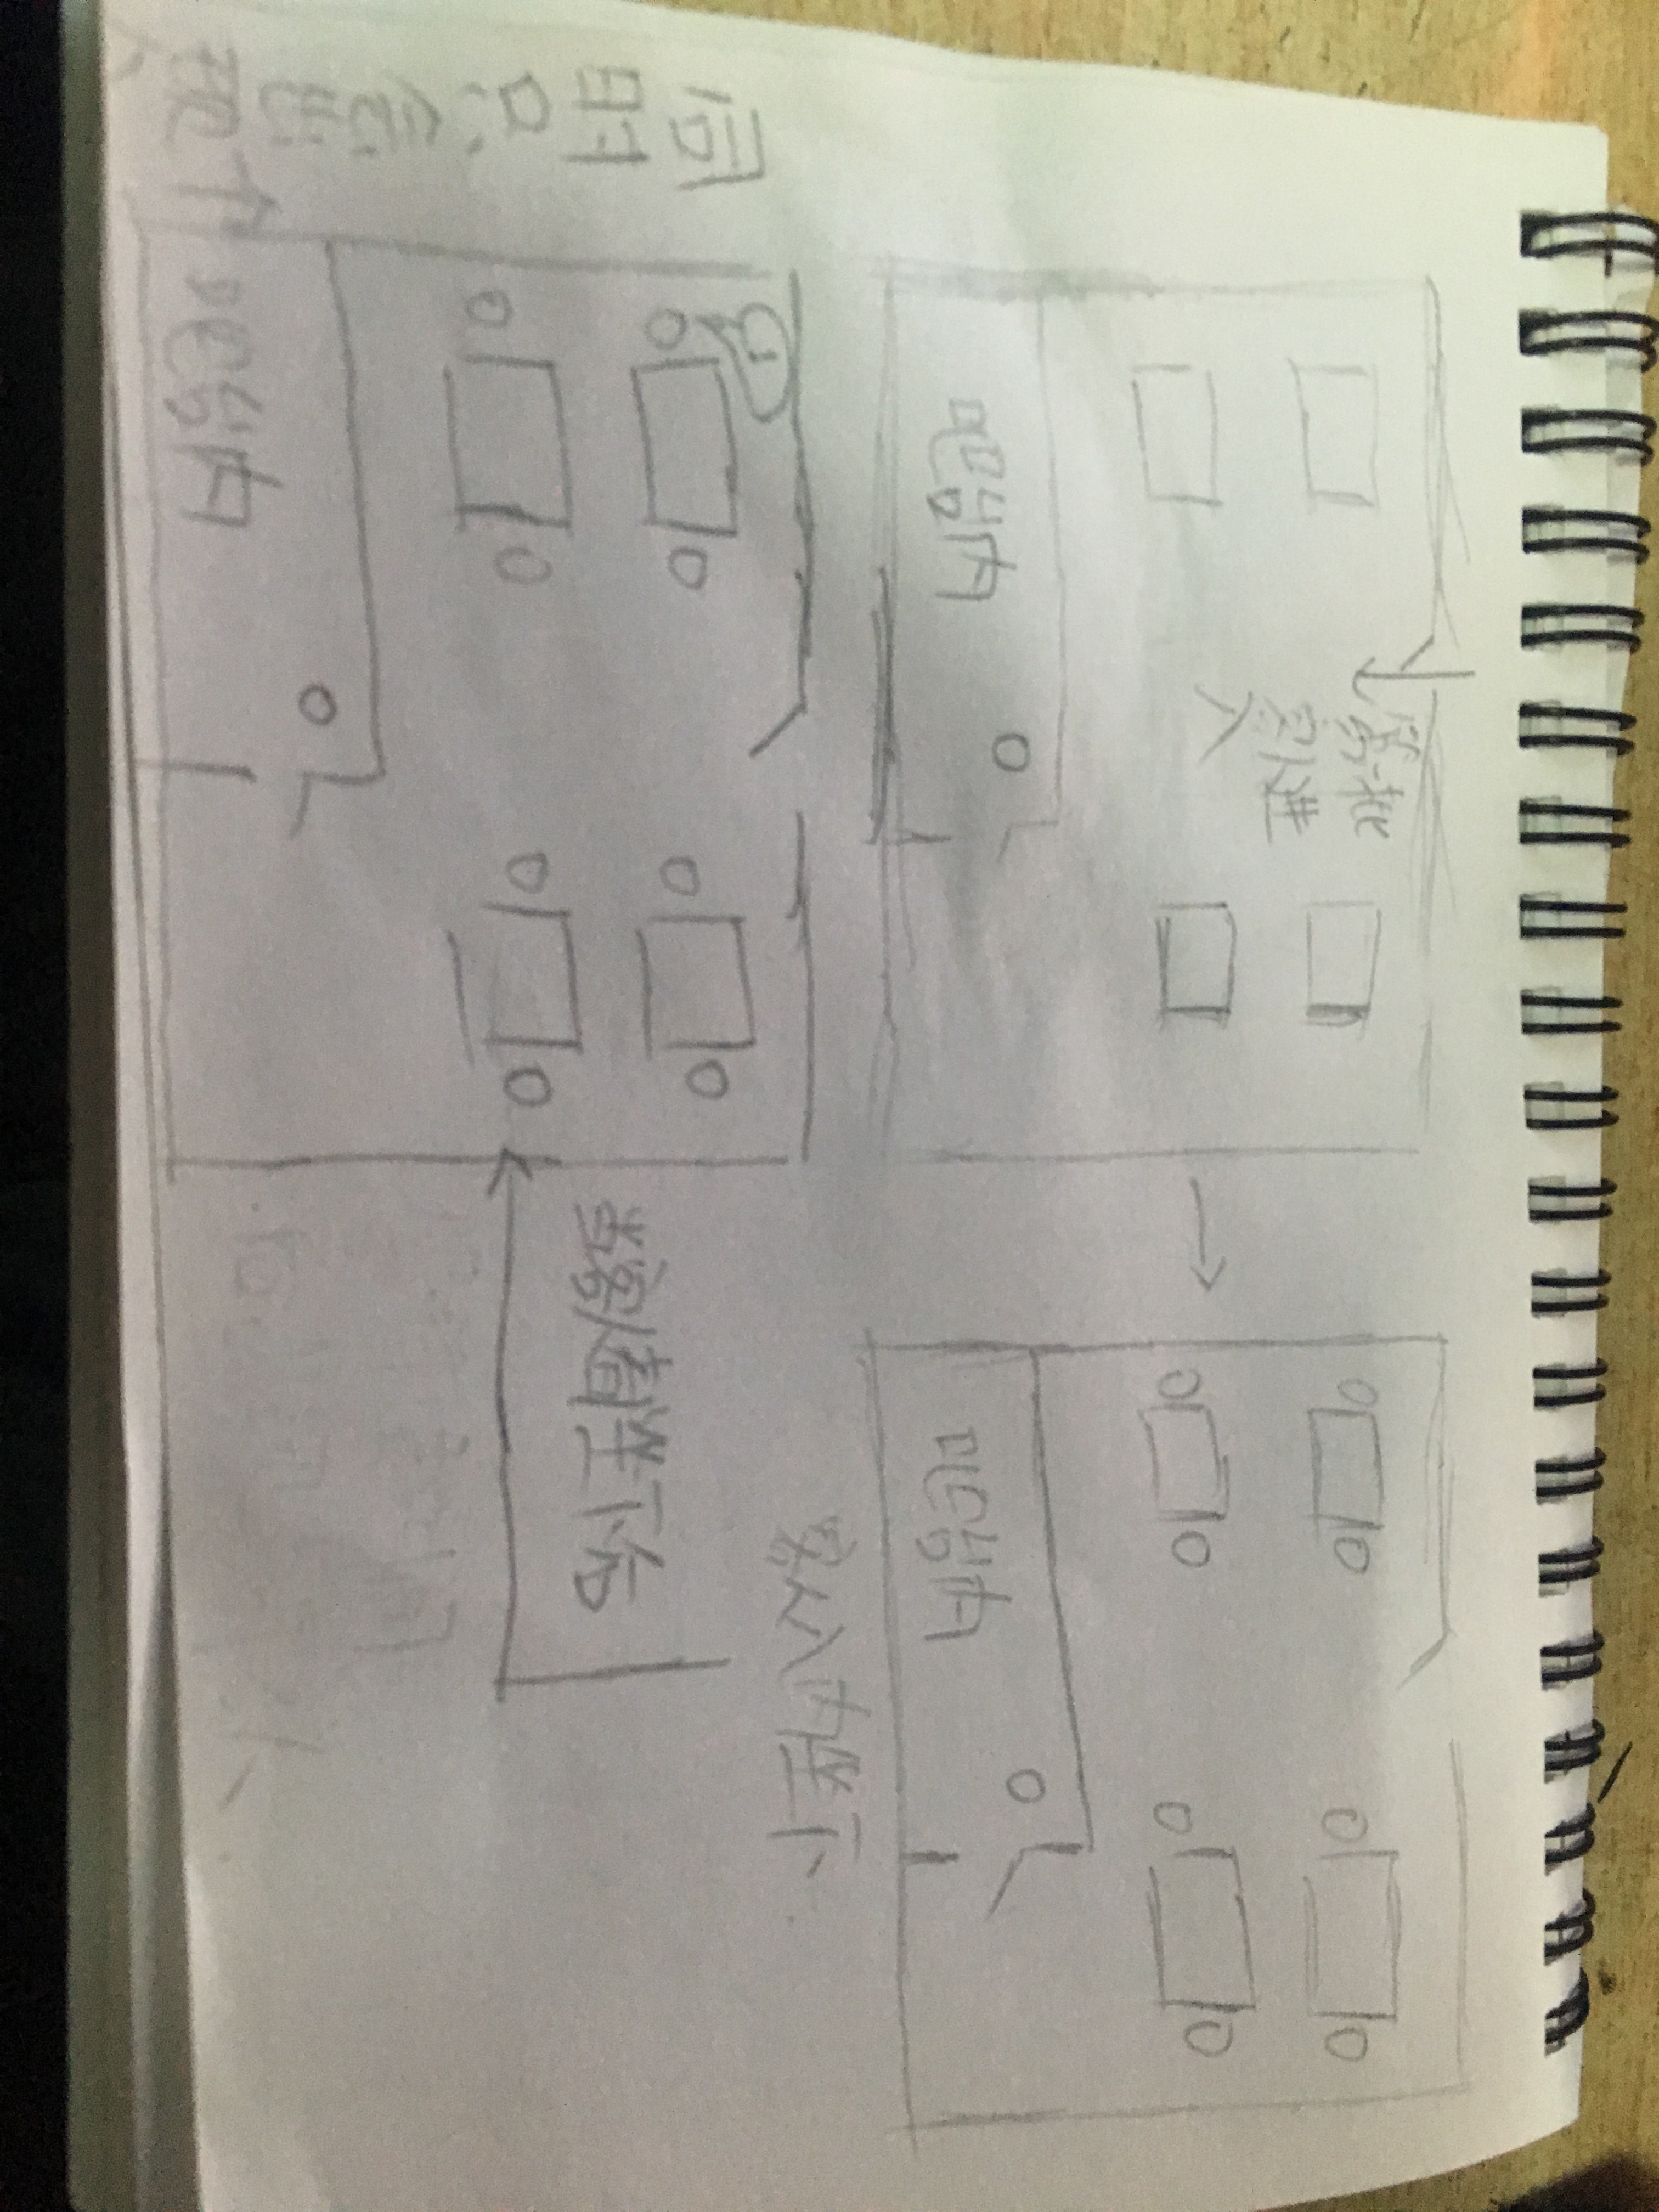 第一批
客人进
入
吧台内
吧台内
客人入内坐下.
当客人都坐下后
同
时
只
会
出
现个
人
吧台内